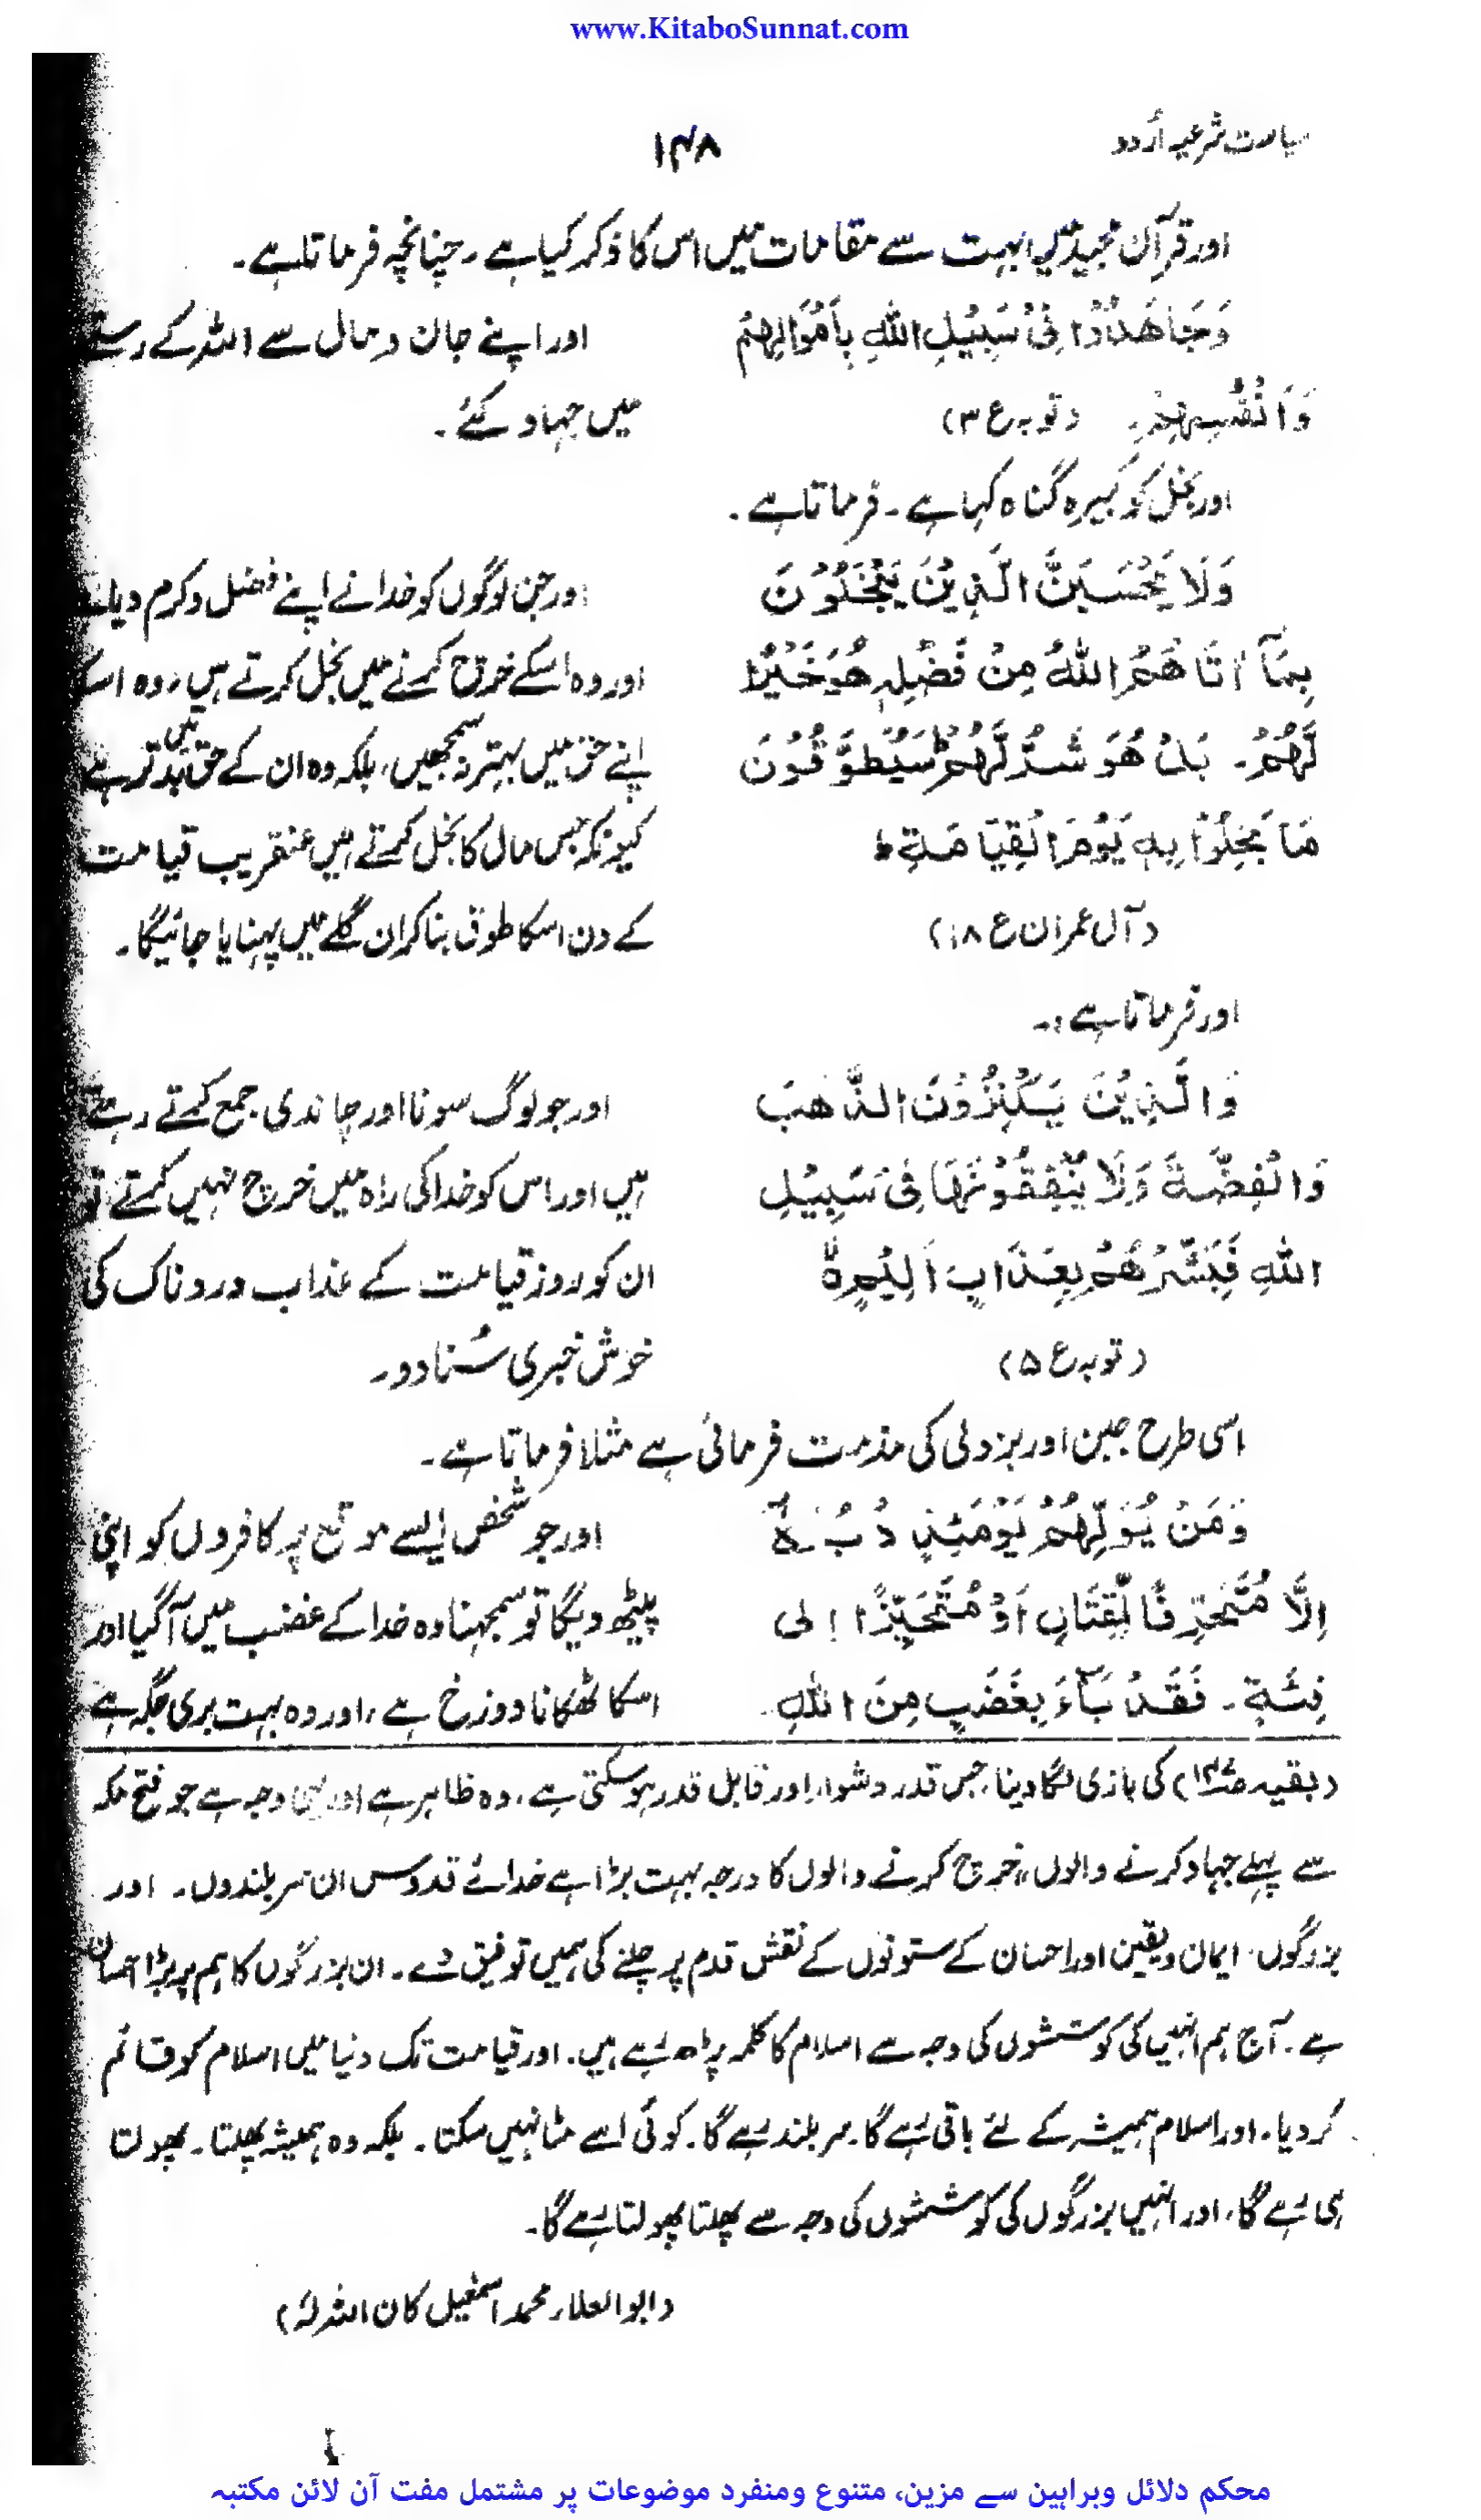 www.KitaboSunnat.com
سیاست شرعیہ اُردو
۱۴۸
اور قرآن مجید میں بہت سے مقامات میں اس کا ذکر کیا ہے۔ چنانچہ فرماتا ہے۔
وَجَاهَدُوْا فِیْ سَبِیْلِ اللّٰهِ بِاَمْوَالِهِمْ
وَاَنْفُسِهِمْ۔ (توبہ ع ۳)
اور اپنے جان و مال سے اللہ کے رستے
میں جہاد کئے۔
اور بخل کو کبیرہ گناہ کہا ہے۔ فرماتا ہے۔
وَلَا یَحْسَبَنَّ الَّذِیْنَ یَبْخَلُوْنَ
بِمَآ اٰتَاهُمُ اللّٰهُ مِنْ فَضْلِهٖ هُوَ خَیْرًا
لَّهُمْ۔ بَلْ هُوَ شَرٌّ لَّهُمْ سَیُطَوَّقُوْنَ
مَا بَخِلُوْا بِهٖ یَوْمَ الْقِیَامَةِ ط
(آل عمران ع ۱۸)
اور جن لوگوں کو خدا نے اپنے فضل و کرم دیا ہے
اور وہ اسکے خرچ کرنے میں بخل کرتے ہیں، وہ اسکو
اپنے حق میں بہتر نہ سمجھیں، بلکہ وہ ان کے حق میں بدتر ہے
کیونکہ جس مال کا بخل کرتے ہیں عنقریب قیامت
کے دن اسکا طوق بنا کر ان گلے میں پہنایا جائیگا۔
اور فرماتا ہے:۔
وَالَّذِیْنَ یَکْنِزُوْنَ الذَّهَبَ
وَالْفِضَّةَ وَلَا یُنْفِقُوْنَهَا فِیْ سَبِیْلِ
اللّٰهِ فَبَشِّرْهُمْ بِعَذَابٍ اَلِیْمٍ ہ
(توبہ ع ۵)
اور جو لوگ سونا اور چاندی جمع کرتے رہتے
ہیں اور اس کو خدا کی راہ میں خرچ نہیں کرتے تو
ان کو روز قیامت کے عذاب دردناک کی
خوش خبری سُنا دو۔
اسی طرح جبن اور بزدلی کی مذمت فرمائی ہے مثلا فرماتا ہے۔
وَمَنْ یُّوَلِّهِمْ یَوْمَئِذٍ دُبُرَهٗ
اِلَّا مُتَحَرِّفًا لِّقِتَالٍ اَوْ مُتَحَیِّزًا اِلٰی
فِئَةٍ۔ فَقَدْ بَآءَ بِغَضَبٍ مِنَ اللّٰهِ
اور جو شخص ایسے موقع پر کافروں کو اپنی
پیٹھ دیگا تو سمجھنا وہ خدا کے غضب میں آگیا اور
اسکا ٹھکانا دوزخ ہے، اور وہ بہت بری جگہ ہے
(بقیہ ص۱۴۷) کی بازی لگا دینا، جس قدر دشوار اور قابل قدر ہو سکتی ہے، وہ ظاہر ہے اور یہی وجہ ہے جو فتح مکہ
سے پہلے جہاد کرنے والوں، خرچ کرنے والوں کا درجہ بہت بڑا ہے خدائے قدوس ان سربلندوں۔ اور
بزرگوں۔ ایمان ویقین اور احسان کے ستونوں کے نقش قدم پر چلنے کی ہمیں توفیق دے۔ ان بزرگوں کا ہم پر بڑا احسان
ہے۔ آج ہم انہیں کی کوششوں کی وجہ سے اسلام کا کلمہ پڑھ رہے ہیں۔ اور قیامت تک دنیا میں اسلام کو قائم
کر دیا۔ اور اسلام ہمیشہ کے لئے باقی رہے گا۔ سر بلند رہے گا۔ کوئی اسے مٹا نہیں سکتا۔ بلکہ وہ ہمیشہ پھلتا۔ پھولتا
ہی رہے گا، اور انہیں بزرگوں کی کوششوں کی وجہ سے پھلتا پھولتا رہے گا۔
(ابو العلاء محمد اسمٰعیل کان اللہ لہٗ)
محکم دلائل وبراہین سے مزین، متنوع ومنفرد موضوعات پر مشتمل مفت آن لائن مکتبہ